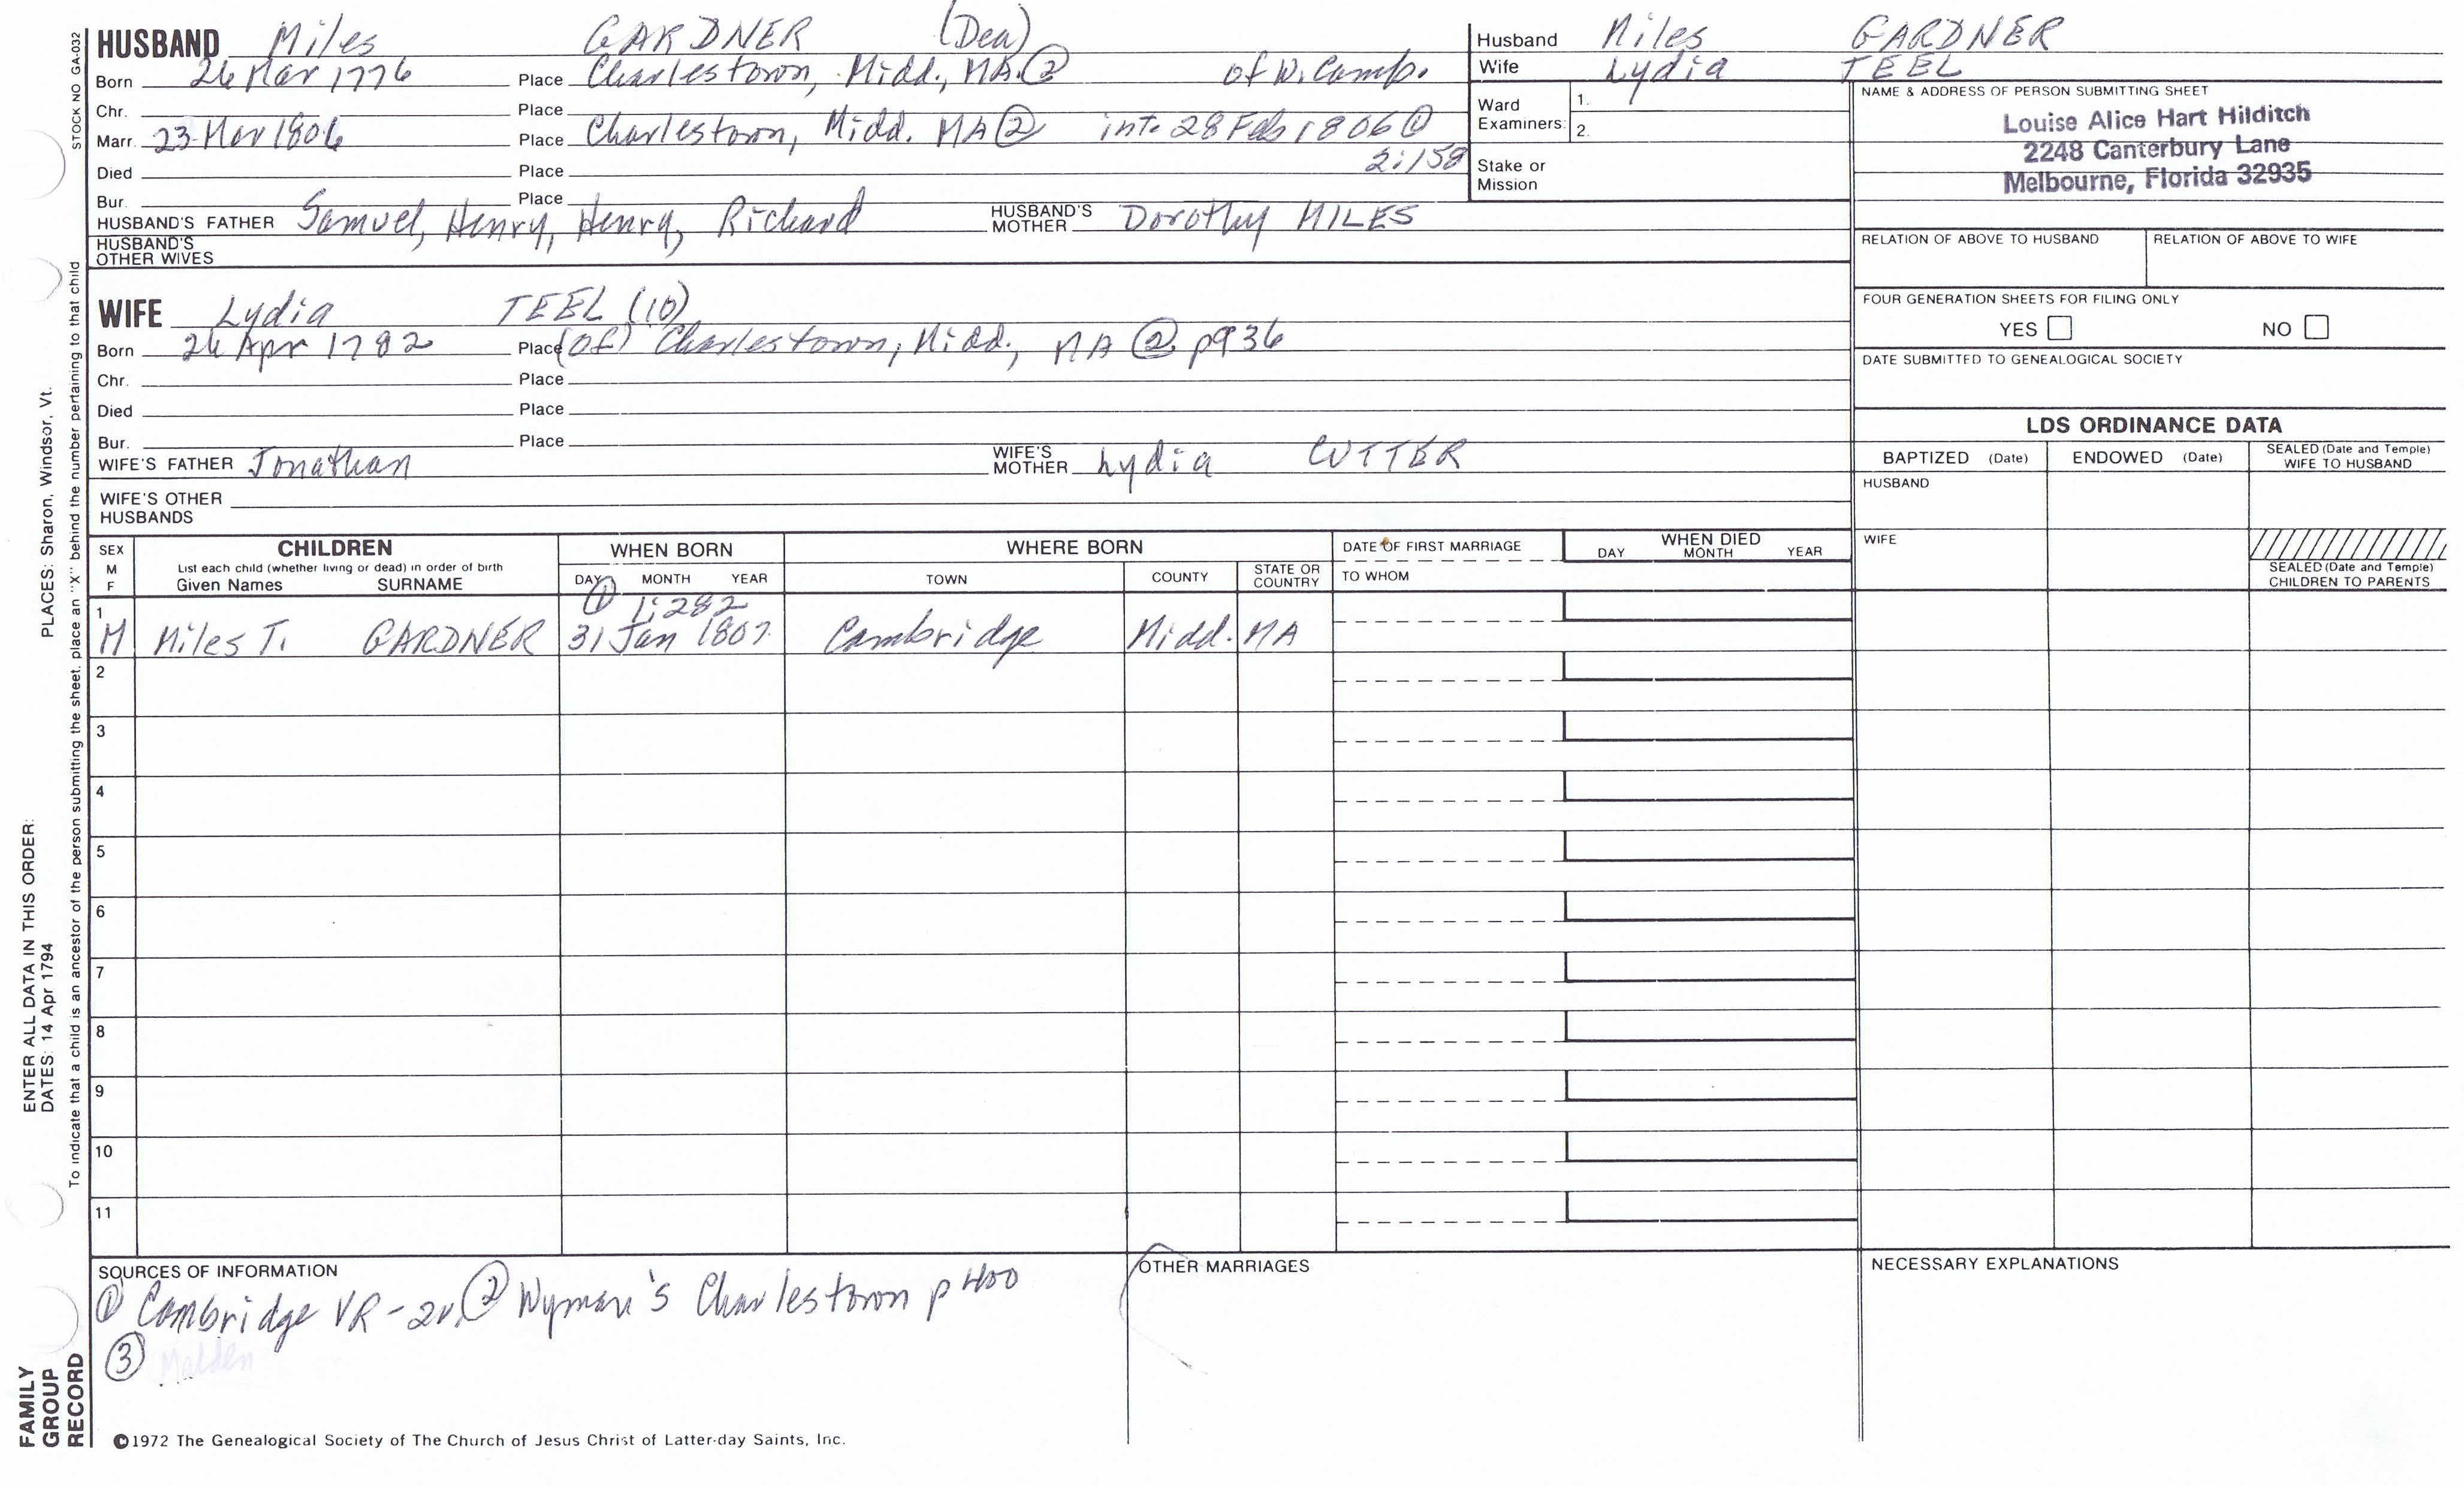 HUSBAND Miles GARDNER (Dea)
Born 26 Mar 1776 Place Charlestown, Midd., MA. ② of W. Camb.
Chr. Place
Marr. 23 Mar 1806 Place Charlestown, Midd. MA ② int. 28 Feb 1806 ①
2:158
Died Place
Bur. Place
HUSBAND'S FATHER Samuel, Henry, Henry, Richard HUSBAND'S MOTHER Dorothy MILES
HUSBAND'S OTHER WIVES
Husband Miles GARDNER
Wife Lydia TEEL
Ward Examiners: 1.
2.
Stake or Mission
NAME & ADDRESS OF PERSON SUBMITTING SHEET
Louise Alice Hart Hilditch
2248 Canterbury Lane
Melbourne, Florida 32935
RELATION OF ABOVE TO HUSBAND RELATION OF ABOVE TO WIFE
FOUR GENERATION SHEETS FOR FILING ONLY
YES NO
DATE SUBMITTED TO GENEALOGICAL SOCIETY
WIFE Lydia TEEL (10)
Born 26 Apr 1782 Place (of) Charlestown, Midd., MA ② p936
Chr. Place
Died Place
Bur. Place
WIFE'S FATHER Jonathan WIFE'S MOTHER Lydia CUTTER
WIFE'S OTHER HUSBANDS
LDS ORDINANCE DATA
BAPTIZED (Date) ENDOWED (Date) SEALED (Date and Temple) WIFE TO HUSBAND
HUSBAND
WIFE
SEALED (Date and Temple) CHILDREN TO PARENTS
SEX M F
CHILDREN
List each child (whether living or dead) in order of birth
Given Names SURNAME
WHEN BORN
DAY MONTH YEAR
WHERE BORN
TOWN COUNTY STATE OR COUNTRY
DATE OF FIRST MARRIAGE
TO WHOM
WHEN DIED
DAY MONTH YEAR
① 1:282
1 M Miles T. GARDNER 31 Jan 1807 Cambridge Midd. MA
2
3
4
5
6
7
8
9
10
11
SOURCES OF INFORMATION
① Cambridge VR-2v. ② Wyman's Charlestown p400
③ Malden
OTHER MARRIAGES
NECESSARY EXPLANATIONS
©1972 The Genealogical Society of The Church of Jesus Christ of Latter-day Saints, Inc.
STOCK NO GA-032
To indicate that a child is an ancestor of the person submitting the sheet, place an "X" behind the number pertaining to that child
ENTER ALL DATA IN THIS ORDER:
DATES: 14 Apr 1794
PLACES: Sharon, Windsor, Vt.
FAMILY
GROUP
RECORD